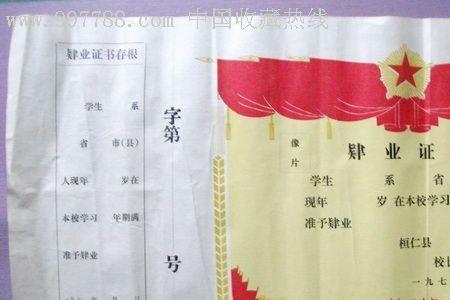 www.997788.com 中国收藏热线
肄业证书存根
学生 系
省 市(县)
人现年 岁在
本校学习 年期满
准予肄业
字第
号
肄业证
像片
学生 系 省
现年 岁 在本校学习
准予肄业
桓仁县
校
一九七